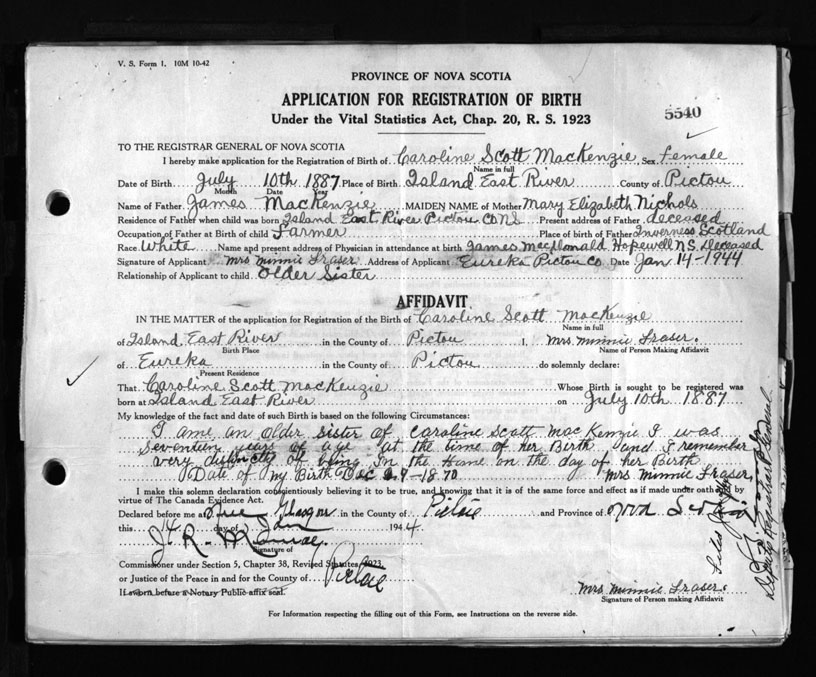 V. S. Form 1. 10M 10-42
PROVINCE OF NOVA SCOTIA
APPLICATION FOR REGISTRATION OF BIRTH
5540
Under the Vital Statistics Act, Chap. 20, R. S. 1923
TO THE REGISTRAR GENERAL OF NOVA SCOTIA
I hereby make application for the Registration of Birth of Caroline Scott MacKenzie, Sex Female
Name in full
Date of Birth July 10th 1887 Place of Birth Island East River County of Pictou
Month Date Year
Name of Father James MacKenzie MAIDEN NAME of Mother Mary Elizabeth Nichols
Residence of Father when child was born Island East River Pictou Co NS Present address of Father deceased
Occupation of Father at Birth of child Farmer Place of Birth of Father Inverness Scotland
Race White Name and present address of Physician in attendance at birth James MacDonald Hopewell N.S. Deceased
Signature of Applicant Mrs Minnie Fraser Address of Applicant Eureka Pictou Co Date Jan 14-1944
Relationship of Applicant to child Older Sister
AFFIDAVIT
IN THE MATTER of the application for Registration of the Birth of Caroline Scott MacKenzie
Name in full
of Island East River in the County of Pictou I, Mrs. Minnie Fraser.
Birth Place Name of Person Making Affidavit
of Eureka in the County of Pictou do solemnly declare:
Present Residence
That Caroline Scott MacKenzie Whose Birth is sought to be registered was
born at Island East River on July 10th 1887
My knowledge of the fact and date of such Birth is based on the following Circumstances:
I ame an older sister of Caroline Scott MacKenzie I was
Seventeen years of age at the time of her Birth and I remember
very distinctly of being in the Home on the day of her Birth
Date of my Birth Dec 29-1870 Mrs Minnie Fraser
I make this solemn declaration conscientiously believing it to be true, and knowing that it is of the same force and effect as if made under oath by
virtue of The Canada Evidence Act.
Declared before me at New Glasgow in the County of Pictou and Province of Nova Scotia
this 14 day of Jan 1944
J. R.
Signature of
Commissioner under Section 5, Chapter 38, Revised Statutes 1923,
or Justice of the Peace in and for the County of Pictou
If sworn before a Notary Public affix seal.
Mrs Minnie Fraser.
Signature of Person making Affidavit
For Information respecting the filling out of this Form, see Instructions on the reverse side.
Deputy Registrar General